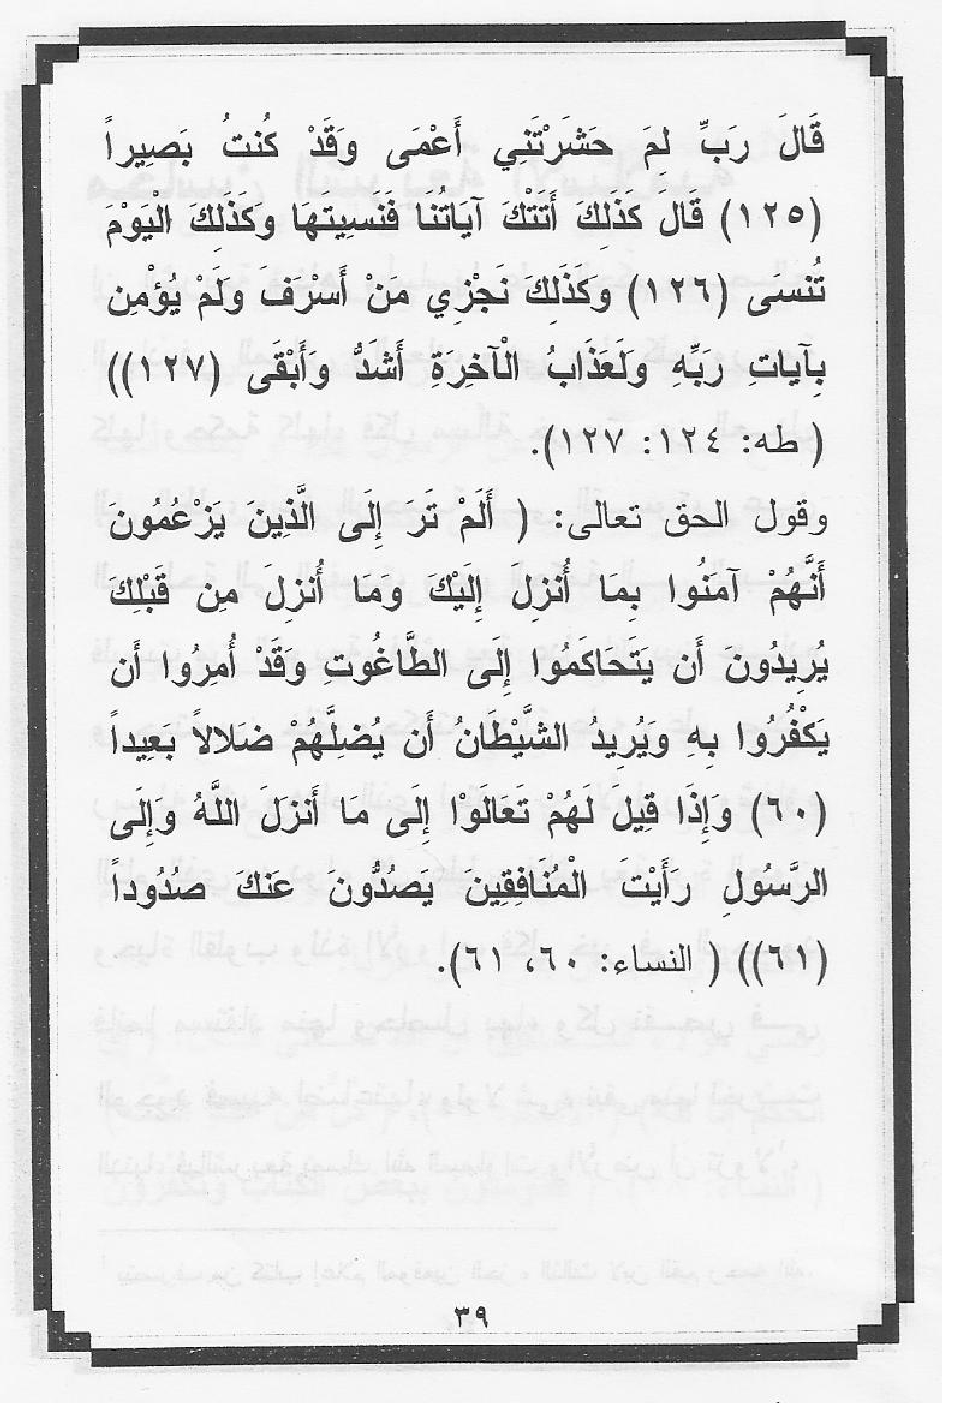 قَالَ رَبِّ لِمَ حَشَرْتَنِي أَعْمَى وَقَدْ كُنتُ بَصِيراً
(١٢٥) قَالَ كَذَلِكَ أَتَتْكَ آيَاتُنَا فَنَسِيتَهَا وَكَذَلِكَ الْيَوْمَ
تُنسَى (١٢٦) وَكَذَلِكَ نَجْزِي مَنْ أَسْرَفَ وَلَمْ يُؤْمِن
بِآيَاتِ رَبِّهِ وَلَعَذَابُ الْآخِرَةِ أَشَدُّ وَأَبْقَى (١٢٧))
( طه: ١٢٤: ١٢٧).
وقول الحق تعالى: ( أَلَمْ تَرَ إِلَى الَّذِينَ يَزْعُمُونَ
أَنَّهُمْ آمَنُوا بِمَا أُنزِلَ إِلَيْكَ وَمَا أُنزِلَ مِن قَبْلِكَ
يُرِيدُونَ أَن يَتَحَاكَمُوا إِلَى الطَّاغُوتِ وَقَدْ أُمِرُوا أَن
يَكْفُرُوا بِهِ وَيُرِيدُ الشَّيْطَانُ أَن يُضِلَّهُمْ ضَلالاً بَعِيداً
(٦٠) وَإِذَا قِيلَ لَهُمْ تَعَالَوْا إِلَى مَا أَنزَلَ اللَّهُ وَإِلَى
الرَّسُولِ رَأَيْتَ الْمُنَافِقِينَ يَصُدُّونَ عَنكَ صُدُوداً
(٦١)) ( النساء: ٦٠، ٦١).
٣٩